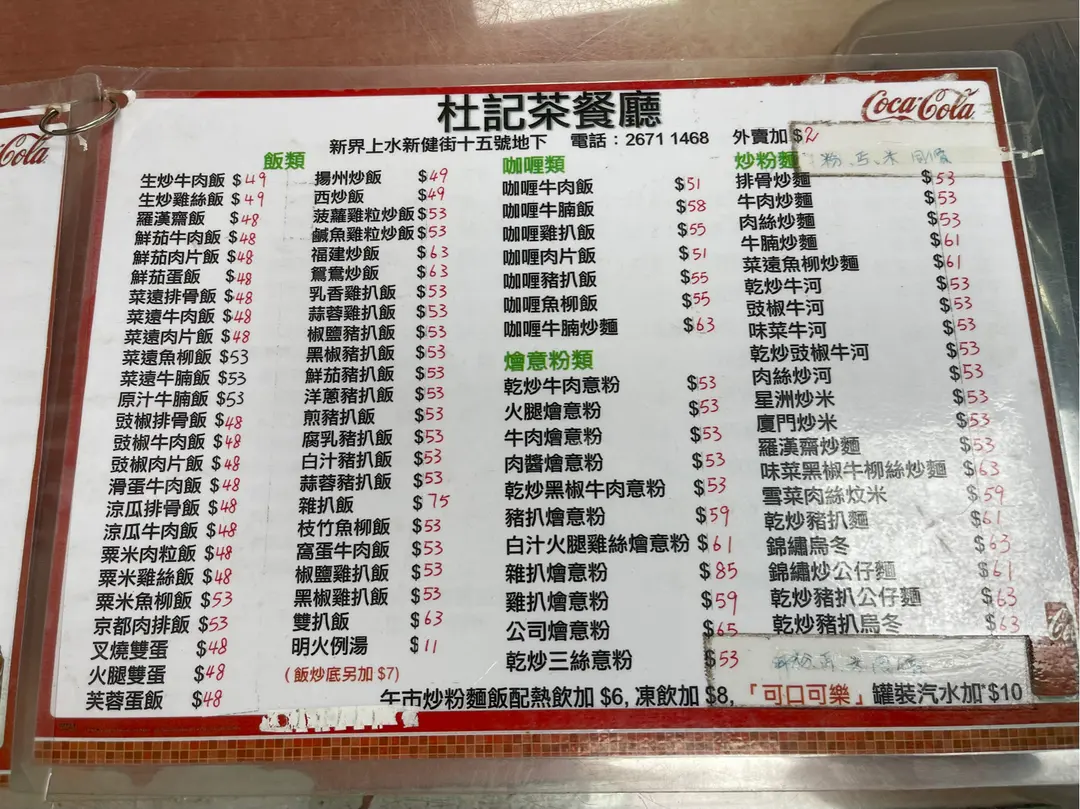 Coca-Cola
Cola
杜記茶餐廳
新界上水新健街十五號地下 電話：2671 1468 外賣加 $2
飯類
生炒牛肉飯 $49
生炒雞絲飯 $49
羅漢齋飯 $48
鮮茄牛肉飯 $48
鮮茄肉片飯 $48
鮮茄蛋飯 $48
菜遠排骨飯 $48
菜遠牛肉飯 $48
菜遠肉片飯 $48
菜遠魚柳飯 $53
菜遠牛腩飯 $53
原汁牛腩飯 $53
豉椒排骨飯 $48
豉椒牛肉飯 $48
豉椒肉片飯 $48
滑蛋牛肉飯 $48
涼瓜排骨飯 $48
涼瓜牛肉飯 $48
粟米肉粒飯 $48
粟米雞絲飯 $48
粟米魚柳飯 $53
京都肉排飯 $53
叉燒雙蛋 $48
火腿雙蛋 $48
芙蓉蛋飯 $48
揚州炒飯 $49
西炒飯 $49
菠蘿雞粒炒飯 $53
鹹魚雞粒炒飯 $53
福建炒飯 $63
鴛鴦炒飯 $63
乳香雞扒飯 $53
蒜蓉雞扒飯 $53
椒鹽豬扒飯 $53
黑椒豬扒飯 $53
鮮茄豬扒飯 $53
洋蔥豬扒飯 $53
煎豬扒飯 $53
腐乳豬扒飯 $53
白汁豬扒飯 $53
蒜蓉豬扒飯 $53
雜扒飯 $75
枝竹魚柳飯 $53
窩蛋牛肉飯 $53
椒鹽雞扒飯 $53
黑椒雞扒飯 $53
雙扒飯 $63
明火例湯 $11
（飯炒底另加 $7）
咖喱類
咖喱牛肉飯 $51
咖喱牛腩飯 $58
咖喱雞扒飯 $55
咖喱肉片飯 $51
咖喱豬扒飯 $55
咖喱魚柳飯 $55
咖喱牛腩炒麵 $63
燴意粉類
乾炒牛肉意粉 $53
火腿燴意粉 $53
牛肉燴意粉 $53
肉醬燴意粉 $53
乾炒黑椒牛肉意粉 $53
豬扒燴意粉 $59
白汁火腿雞絲燴意粉 $61
雜扒燴意粉 $85
雞扒燴意粉 $59
公司燴意粉 $65
乾炒三絲意粉 $53
炒粉麵 粉 米 同價
排骨炒麵 $53
牛肉炒麵 $53
肉絲炒麵 $53
牛腩炒麵 $61
菜遠魚柳炒麵 $61
乾炒牛河 $53
豉椒牛河 $53
味菜牛河 $53
乾炒豉椒牛河 $53
肉絲炒河 $53
星洲炒米 $53
廈門炒米 $53
羅漢齋炒麵 $53
味菜黑椒牛柳絲炒麵 $63
雪菜肉絲炆米 $59
乾炒豬扒麵 $61
錦繡烏冬 $63
錦繡炒公仔麵 $61
乾炒豬扒公仔麵 $63
乾炒豬扒烏冬 $63
午市炒粉麵飯配熱飲加 $6, 凍飲加 $8, 「可口可樂」罐裝汽水加 $10